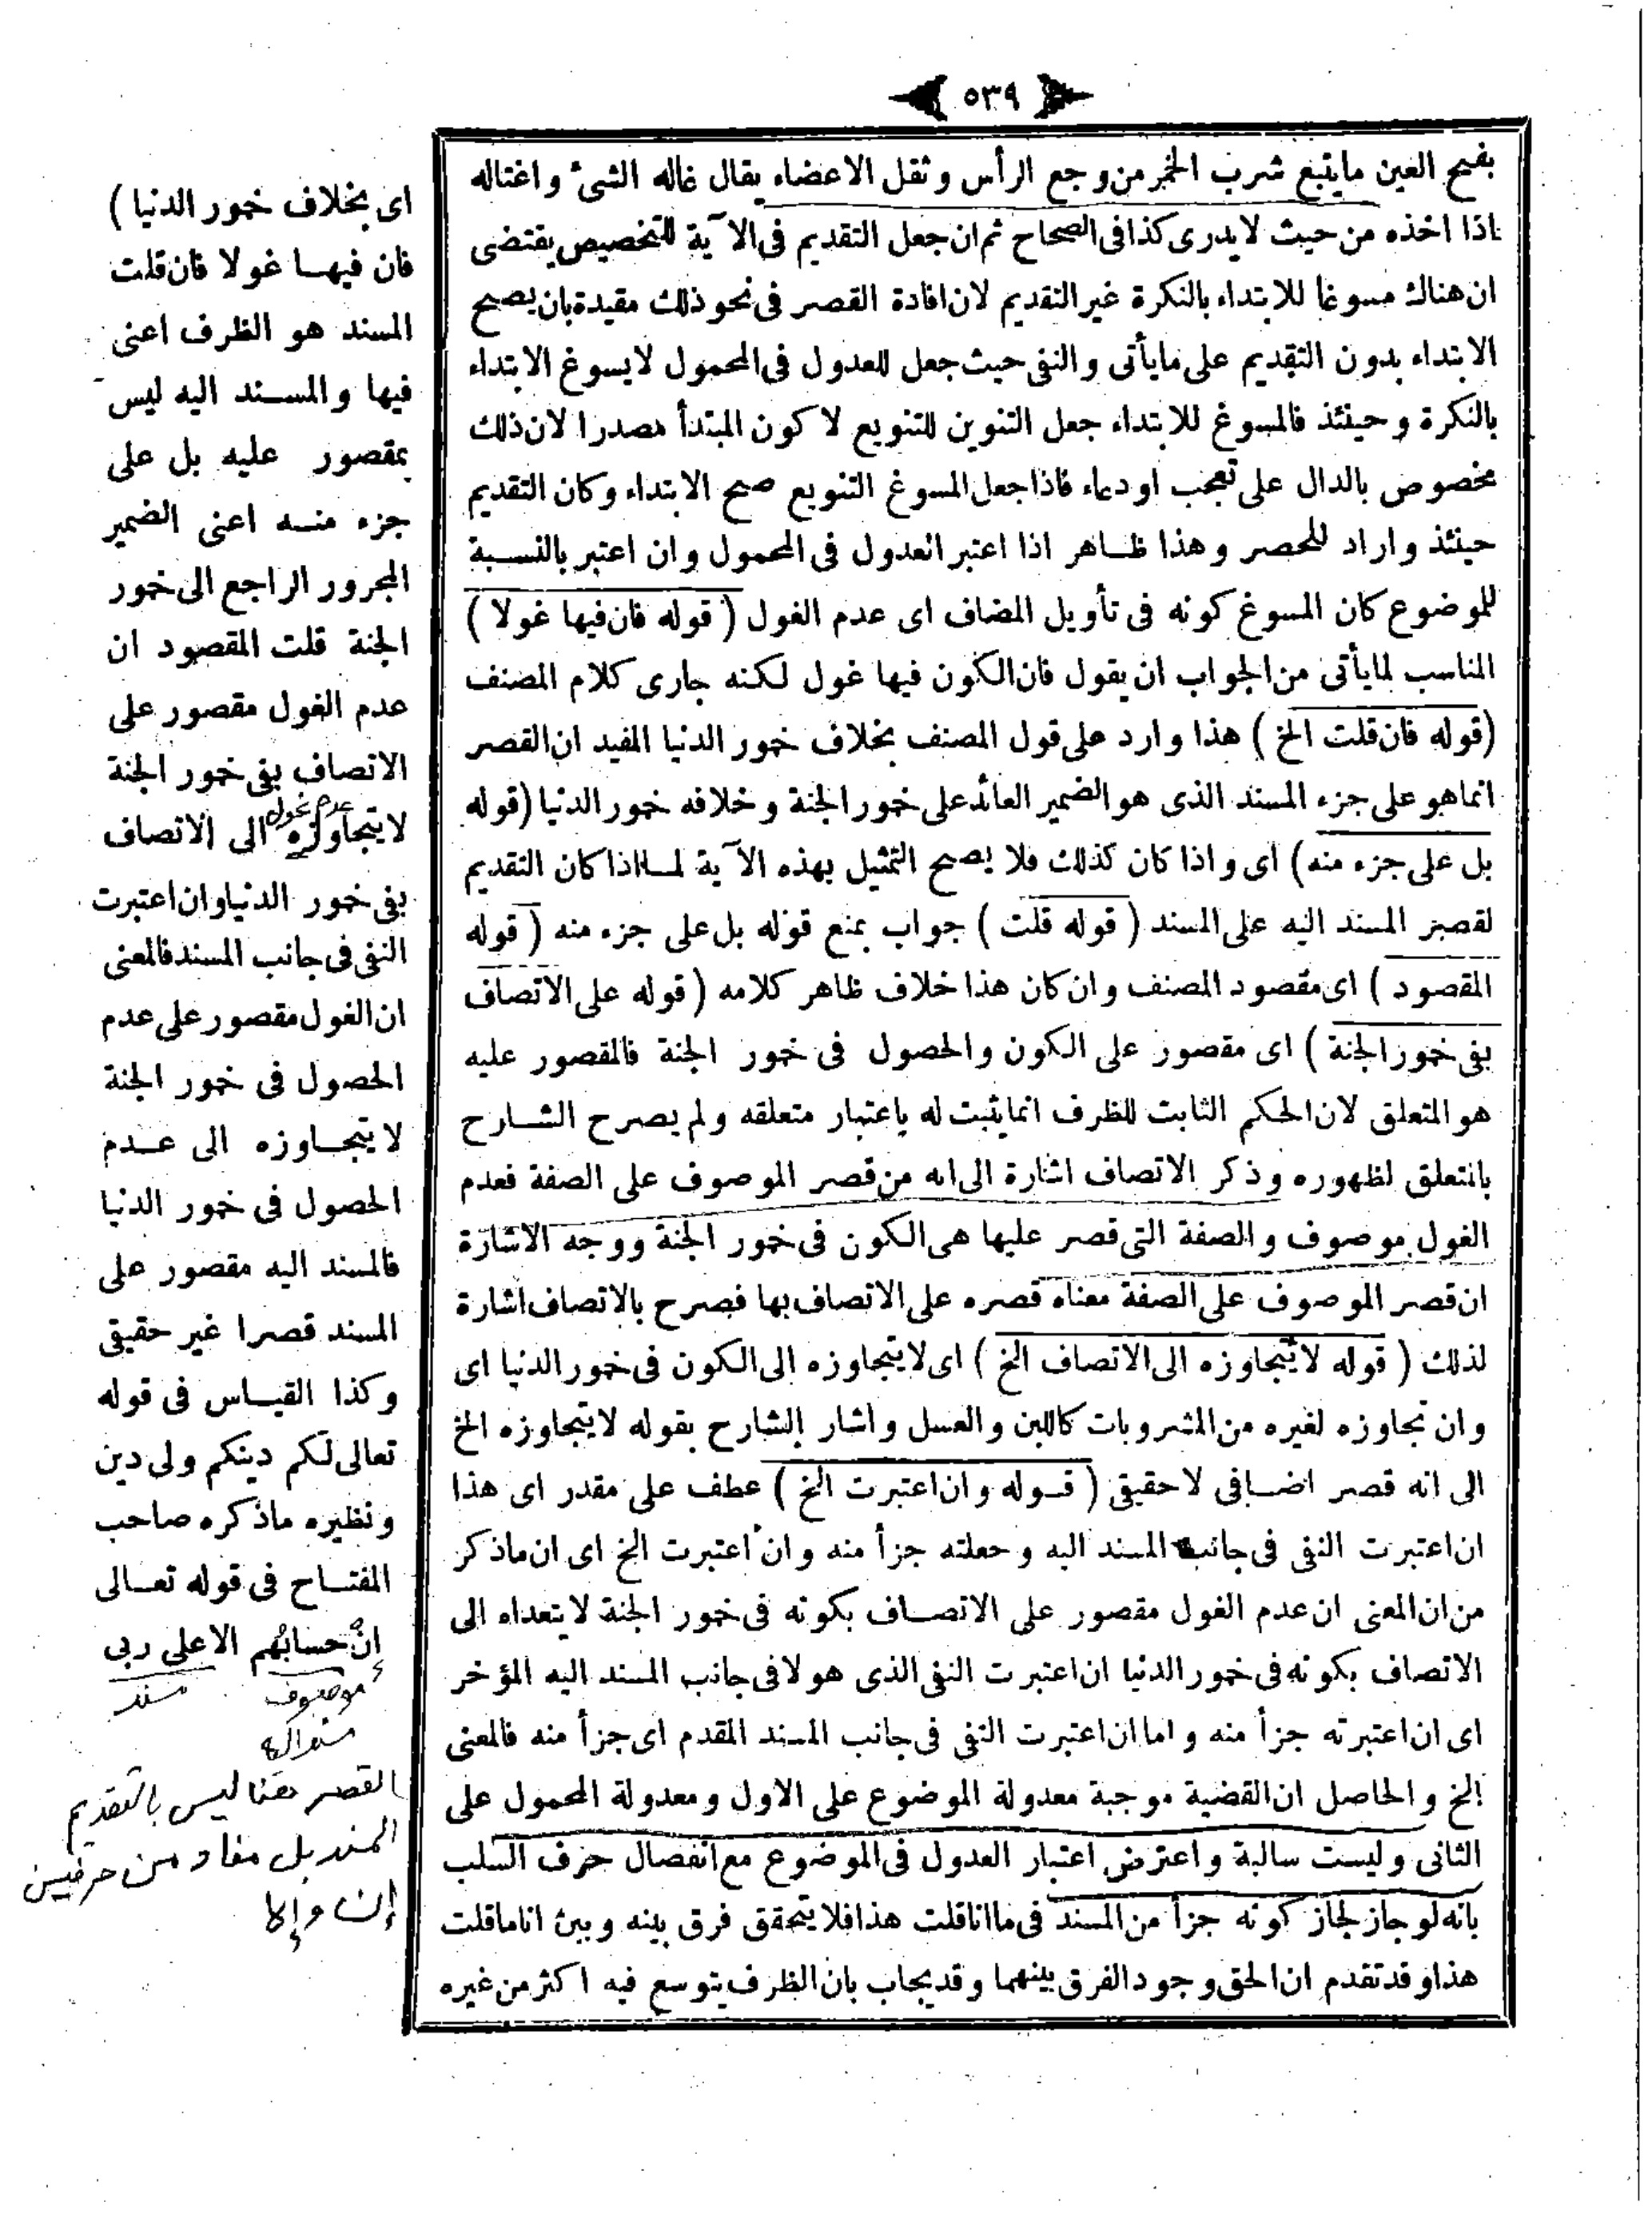 ٥٣٩
بفتح الغين ما يتبع شرب الخمر من وجع الرأس وثقل الاعضاء يقال غاله الشئ واغتاله
اذا اخذه من حيث لا يدرى كذا فى الصحاح ثم ان جعل التقديم فى الآية للتخصيص يقتضى
ان هناك مسوغا للابتداء بالنكرة غير التقديم لان افادة القصر فى نحو ذلك مقيدة بان يصح
الابتداء بدون التقديم على ما يأتى والنفى حيث جعل للعدول فى المحمول لا يسوغ الابتداء
بالنكرة وحينئذ فالمسوغ للابتداء جعل التنوين للتنويع لا كون المبتدأ مصدرا لان ذلك
مخصوص بالدال على تعجب او دعاء فاذا جعل المسوغ التنويع صح الابتداء وكان التقديم
حينئذ واراد للحصر وهذا ظاهر اذا اعتبر العدول فى المحمول وان اعتبر بالنسبة
للموضوع كان المسوغ كونه فى تأويل المضاف اى عدم الغول ( قوله فان فيها غولا )
المناسب لما يأتى من الجواب ان يقول فان الكون فيها غول لكنه جارى كلام المصنف
(قوله فان قلت الخ ) هذا وارد على قول المصنف بخلاف خمور الدنيا المفيد ان القصر
انما هو على جزء المسند الذى هو الضمير العائد على خمور الجنة وخلافه خمور الدنيا (قوله
بل على جزء منه) اى واذا كان كذلك فلا يصح التمثيل بهذه الآية لما اذا كان التقديم
لقصر المسند اليه على المسند ( قوله قلت ) جواب بمنع قوله بل على جزء منه ( قوله
المقصود ) اى مقصود المصنف وان كان هذا خلاف ظاهر كلامه ( قوله على الاتصاف
بفى خمور الجنة ) اى مقصور على الكون والحصول فى خمور الجنة فالمقصور عليه
هو المتعلق لان الحكم الثابت للظرف انما يثبت له باعتبار متعلقه ولم يصرح الشارح
بالمتعلق لظهوره وذكر الاتصاف اشارة الى انه من قصر الموصوف على الصفة فعدم
الغول موصوف والصفة التى قصر عليها هى الكون فى خمور الجنة ووجه الاشارة
ان قصر الموصوف على الصفة معناه قصره على الاتصاف بها فصرح بالاتصاف اشارة
لذلك ( قوله لا يتجاوزه الى الاتصاف الخ ) اى لا يتجاوزه الى الكون فى خمور الدنيا اى
وان تجاوزه لغيره من المشروبات كاللبن والعسل واشار الشارح بقوله لا يتجاوزه الخ
الى انه قصر اضافى لا حقيقى ( قوله وان اعتبرت الخ ) عطف على مقدر اى هذا
ان اعتبرت النفى فى جانب المسند اليه وجعلته جزأ منه وان اعتبرت الخ اى ان ما ذكر
من ان المعنى ان عدم الغول مقصور على الاتصاف بكونه فى خمور الجنة لا يتعداه الى
الاتصاف بكونه فى خمور الدنيا ان اعتبرت النفى الذى هو لا فى جانب المسند اليه المؤخر
اى ان اعتبرته جزأ منه واما ان اعتبرت النفى فى جانب المسند المقدم اى جزأ منه فالمعنى
الخ والحاصل ان القضية موجبة معدولة الموضوع على الاول ومعدولة المحمول على
الثانى وليست سالبة واعترض اعتبار العدول فى الموضوع مع انفصال حرف السلب
بانه لو جاز لجاز كونه جزأ من المسند فى ما انا قلت هذا فلا يتحقق فرق بينه وبين انا ما قلت
هذا وقد تقدم ان الحق وجود الفرق بينهما وقد يجاب بان الظرف يتوسع فيه اكثر من غيره
اى بخلاف خمور الدنيا )
فان فيها غولا فان قلت
المسند هو الظرف اعنى
فيها والمسند اليه ليس
بمقصور عليه بل على
جزء منه اعنى الضمير
المجرور الراجع الى خمور
الجنة قلت المقصود ان
عدم الغول مقصور على
الاتصاف بفى خمور الجنة
عدم غول
لا يتجاوزه الى الاتصاف
بفى خمور الدنيا وان اعتبرت
النفى فى جانب المسند فالمعنى
ان الغول مقصور على عدم
الحصول فى خمور الجنة
لا يتجاوزه الى عدم
الحصول فى خمور الدنيا
فالمسند اليه مقصور على
المسند قصرا غير حقيقى
وكذا القياس فى قوله
تعالى لكم دينكم ولى دين
ونظيره ما ذكره صاحب
المفتاح فى قوله تعالى
إنْ حسابُهم الا على ربى
موصوف مسند
مسند اليه
القصر هنا ليس بالتقديم
المسند بل مفاد من حرفين
إن وإلا